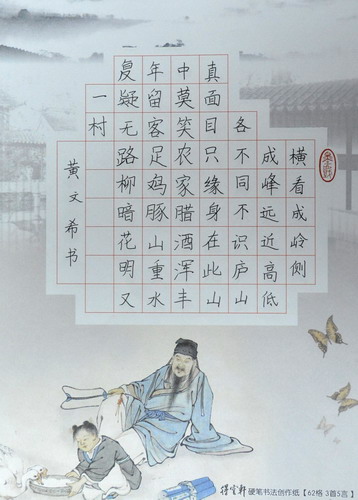 横看成岭侧
成峰远近高低
各不同不识庐山
真面目只缘身在此山
中莫笑农家腊酒浑丰
年留客足鸡豚山重水
复疑无路柳暗花明又
一村
黄文希书
硬笔书法创作纸【62格 3首5言】